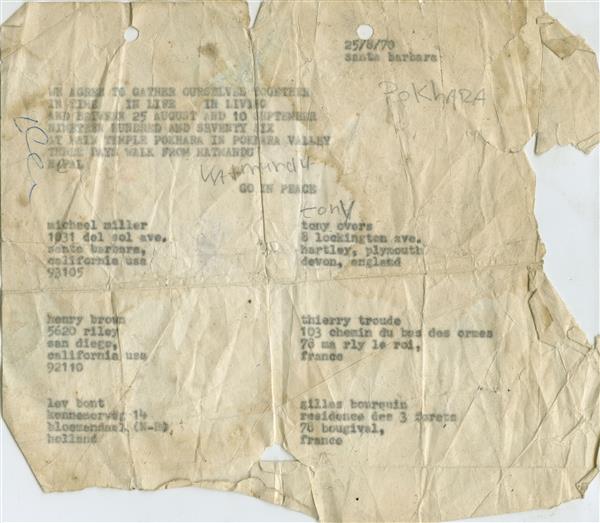 25/8/70
santa barbara
POKHARA
WE AGREE TO GATHER OURSELVES TOGETHER
IN TIME IN LIFE IN LIVING
AND BETWEEN 25 AUGUST AND 10 SEPTEMBER
NINETEEN HUNDRED AND SEVENTY SIX
AT MAIN TEMPLE POKHARA IN POKHARA VALLEY
THREE DAYS WALK FROM KATMANDU
NEPAL
KATMANDU
GO IN PEACE
tony
michael miller
1031 del sol ave.
santa barbara,
california usa
93105
tony overs
8 lockington ave.
hartley, plymouth
devon, england
henry brown
5620 riley
san diego,
california usa
92110
thierry troude
103 chemin du bas des ormes
78 ma rly le roi,
france
lev bont
kennemerweg 14
bloemendaal (N-H),
holland
gilles bourquin
residence des 3 forets
78 bougival,
france